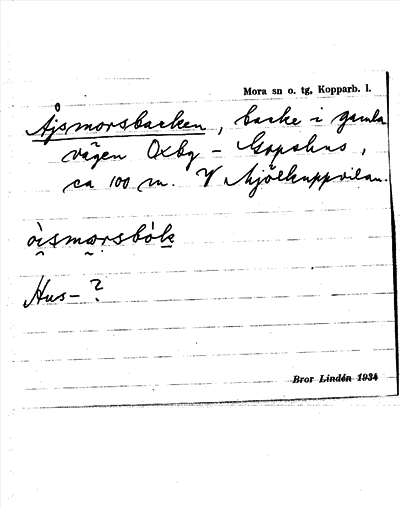 Mora sn o. tg, Kopparb. l.
Åjsmorsbacken, backe i gamla
vägen Oxbg – Gopshus,
ca 100 m. V Mjölkuppvilan.
òismorsbòk
Hus- ?
Bror Lindén 1934